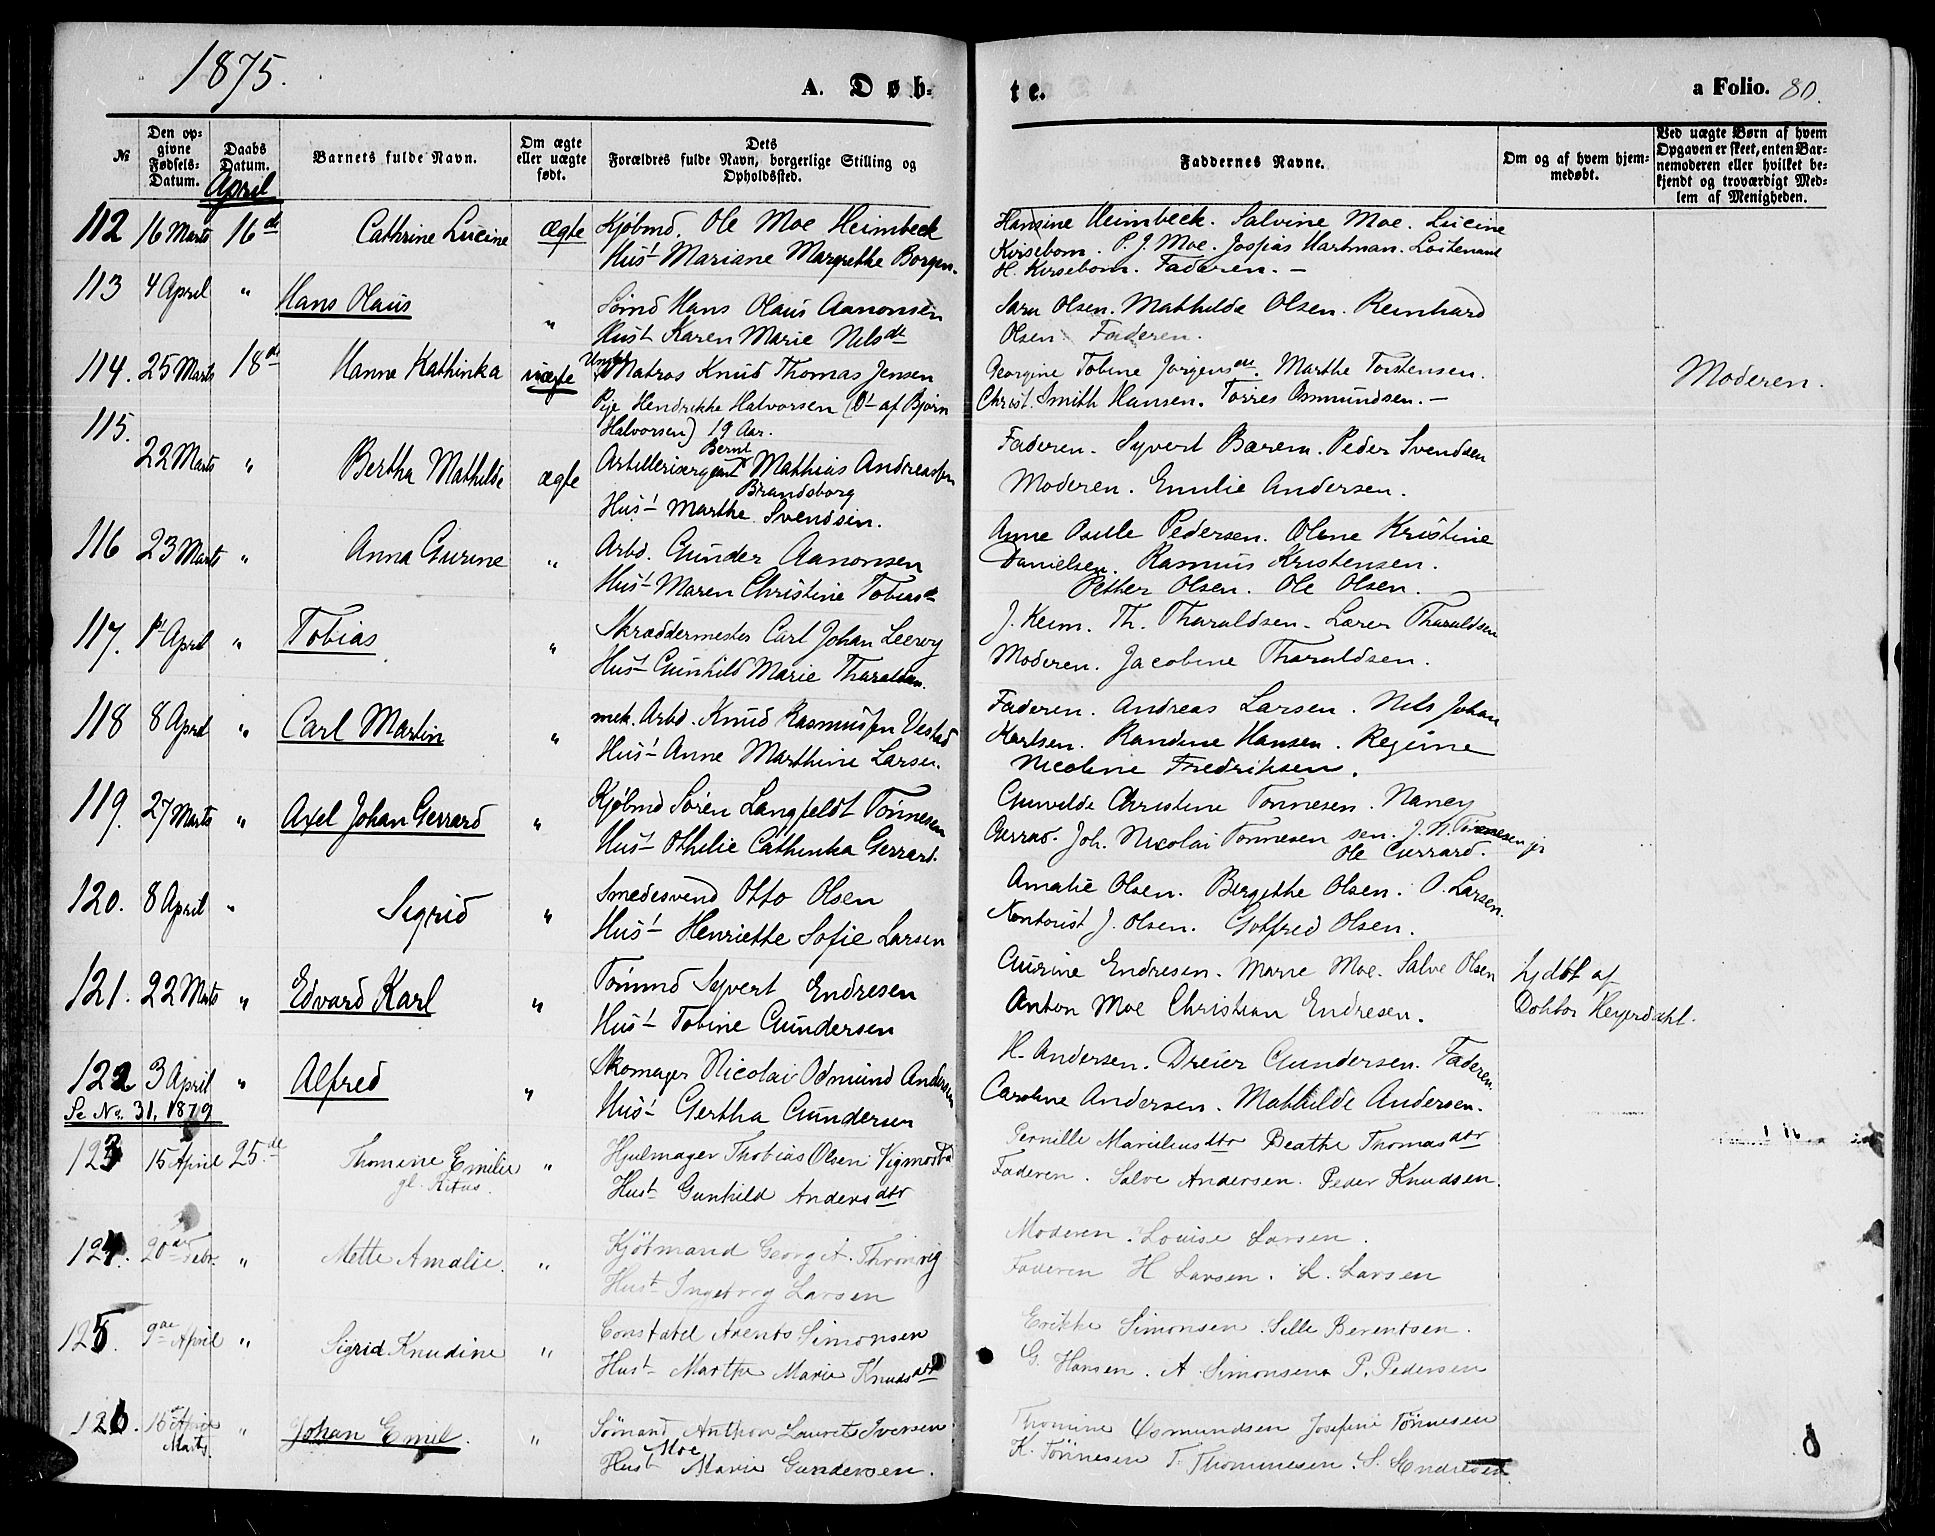 1875.
A. Døb-
te.
a Folio. 80.
№
Den op-
givne
Fødsels-
Datum.
Daabs
Datum.
Barnets fulde Navn.
Om ægte
eller uægte
født.
Dets
Forældres fulde Navn, borgerlige Stilling og
Opholdssted.
Faddernes Navne.
Om og af hvem hjem-
medøbt.
Ved uægte Børn af hvem
Opgaven er skeet, enten Bar-
nemoderen eller hvilket be-
kjendt og troværdigt Med-
lem af Menigheden.
April
112 16 Marts 16de Cathrine Lucine ægte Kjøbmd. Ole Moe Heimbeck
Hust Mariane Margrethe Borgen.
Hansine Heimbeck. Salvine Moe. Lucine
Kirsebom. P. J. Moe. Jospias Hartman. Loitenant
H. Kirsebom. Faderen. –
113 4 April " Hans Olaus " Sømd Hans Olaus Aanonsen
Hust Karen Marie Nilsdt
Sara Olsen. Mathilde Olsen. Reinhard
Olsen. Faderen.
114. 25 Marts 18de Hanne Kathinka uægte Ungk Matros Knud Thomas Jensen
Pige Hendrikke Halvorsen (Dt af Bjørn
Halvorsen) 19 Aar.
Georgine Tobine Jørgensen. Marthe Torstensen.
Christ. Smith Hansen. Torres Osmundsen. –
Moderen.
115. 22 Marts " Bertha Mathilde ægte Artillerisergeant Bernt Mathias Andreassen
Brandsborg
Hust Marthe Svendsen.
Faderen. Syvert Bærem. Peder Svendsen
Moderen. Emilie Andersen.
116 23 Marts " Anna Gurine " Arbd. Gunder Aanonsen
Hust Maren Christine Tobiasdt
Anne Oselle Pedersen. Olene Kristine
Danielsen. Rasmus Kristensen.
Pether Olsen. Ole Olsen.
117. 1st April " Tobias " Skræddermester Carl Johan Leervy
Hust Gunhild Marie Tharaldsen.
J. Keim. Th. Tharaldsen. Lærer Tharaldsen
Moderen. Jacobine Tharaldsen.
118 8 April " Carl Martin " mek. Arbd. Knud Rasmussen Vestad
Hust Anne Marthine Larsen.
Faderen. Andreas Larsen. Nils Johan
Karlsen. Randine Hansen. Regine
Nicoline Fredriksen.
119. 27 Marts " Axel Johan Gerrard " Kjøbmd Søren Langfeldt Tønnesen
Hust Othilie Cathinka Gerrard.
Gunvilde Christine Tønnesen. Nancy
Gerrad. Joh. Nicolai Tønnesen sen. J. N. Tønnesen jr
Ole Gerrard.
120. 8 April " Sigrid " Smedesvend Otto Olsen
Hust Henriette Sofie Larsen
Amalie Olsen. Birgithe Olsen. O. Larsen.
Kontorist J. Olsen. Gotfred Olsen.
121. 22 Marts " Edvard Karl " Tømmd Syvert Endresen
Hust Tobine Gundersen
Gurine Endresen. Marie Moe. Salve Olsen
Anton Moe Christian Endresen.
hjdbt af
Doktor Heyerdahl.
122 3 April " Alfred " Skomager Nicolai Odmund Andersen
Hust Gertha Gundersen
H. Andersen. Dreier Gundersen. Faderen.
Caroline Andersen. Mathilde Andersen.
Se No. 31. 1879
123 15 April 25.de Thomine Emilie " Hjulmager Thobias Olsen Vigmostad
gl. Ritus.
Hust Gunhild Andersdtr
Pernille Mariliusdtr Beathe Thomasdtr
Faderen. Salve Andersen. Peder Knudsen.
124. 20de Febr. " Mette Amalie. " Kjøbmand Georg A. Thronvig
Hust Ingeborg Larsen
Moderen. Louise Larsen.
Faderen H Larsen. L. Larsen
125. 9de April " Sigrid Knudine " Constabel Arents Simonsen
Hust Marthe Marie Knudsdtr
Erikke Simonsen. Sille Berentsen.
G. Hansen. A Simonsen P. Pedersen
126. 15de April " Johan Emil. " Sømand Anthon Laurets Iversen
Marts. Moe
Hust Marie Gundersen.
Thomine Osmundsen Josefine Tønnesen
K. Tønnesen T. Thommesen. S. Endresen.